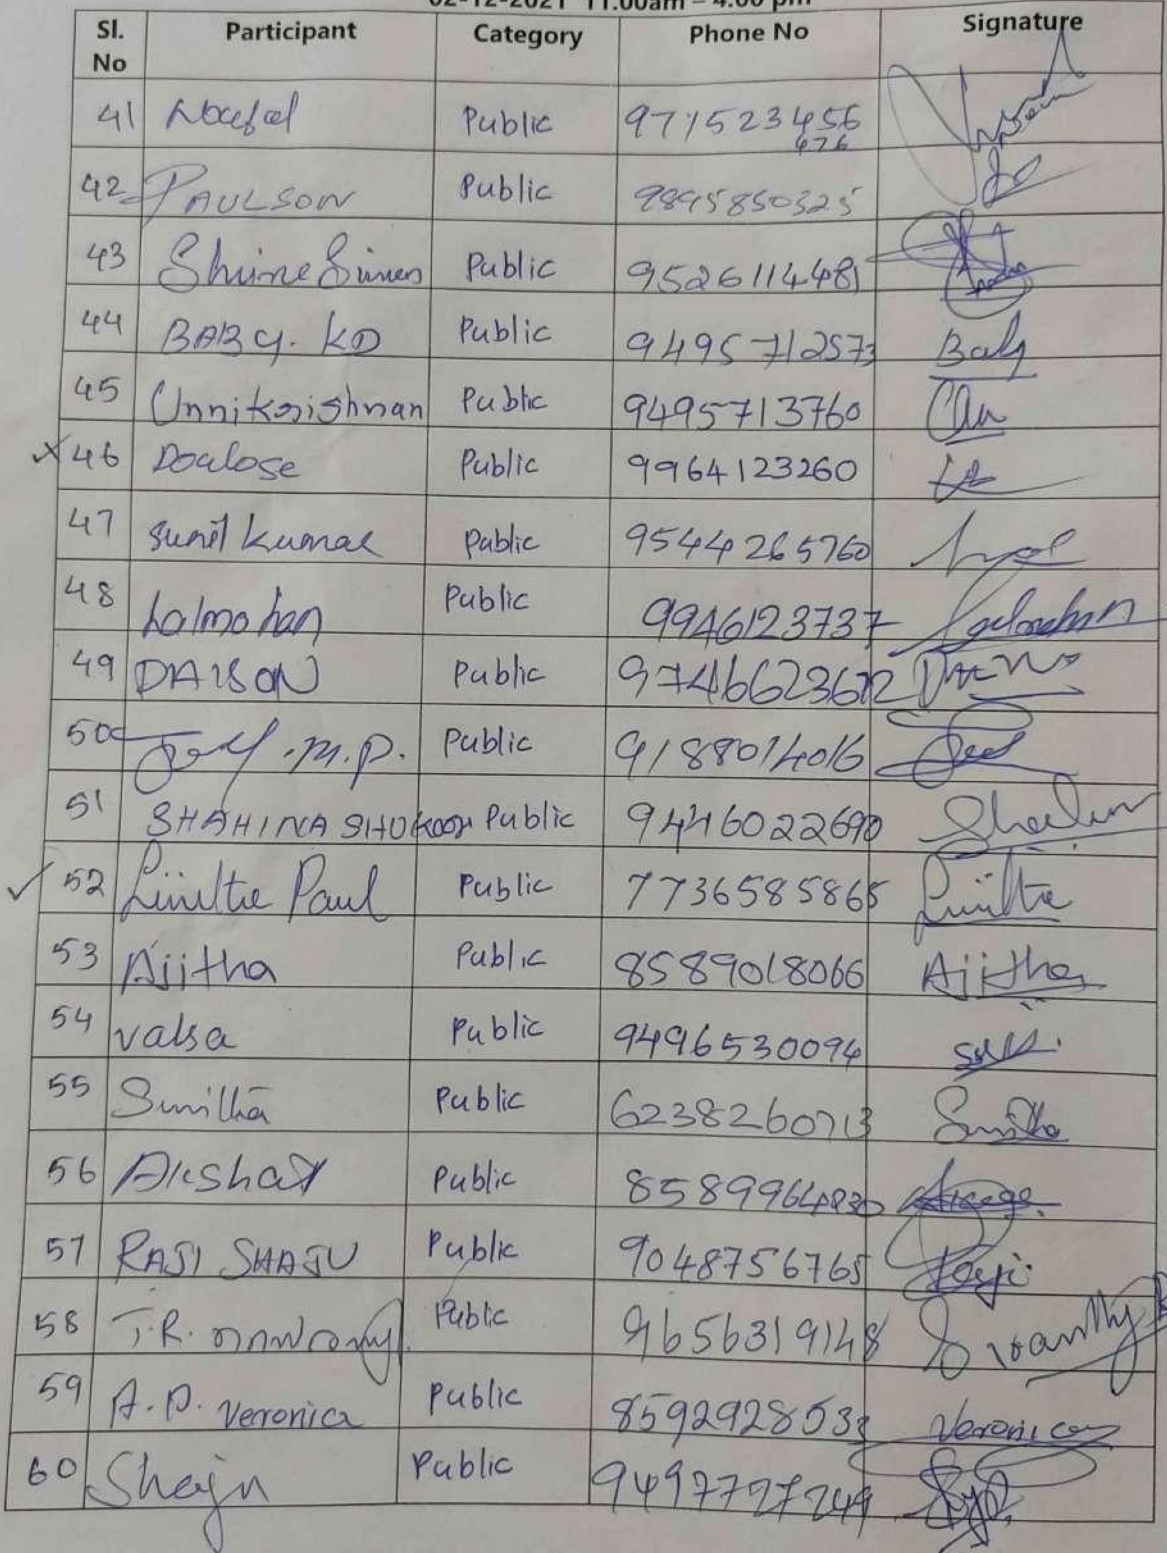 02-12-2021 11.00am – 4.00 pm
Sl. No Participant Category Phone No Signature
41 Noufal Public 971523456
476
42 PAULSON Public 9895850325
43 Shine Simon Public 9526114481
44 BABY. KD Public 9495712573 Baby
45 Unnikrishnan Public 9495713760
46 Poulose Public 9964123260
47 Sunil Kumar Public 9544265760
48 Lalmohan Public 9946123737 Lalmohan
49 DAISON Public
50 M.P. Public 9188014016
51 SHAHINA SHUKOOR Public 9446022690
52 Liniltie Paul Public 7736585865 Liniltie
53 Ajitha Public 8589018066 Ajitha
54 valsa Public 9496530094
55 Sunitha Public 6238260713 Sunitha
56 Akshay Public 8589964830
57 RAJI SHAJU Public 9048756765 Raji
58 T.R. Public 9656319148
59 A.P. Veronica Public 8592928533 Veronica
60 Shaju Public 9497727249